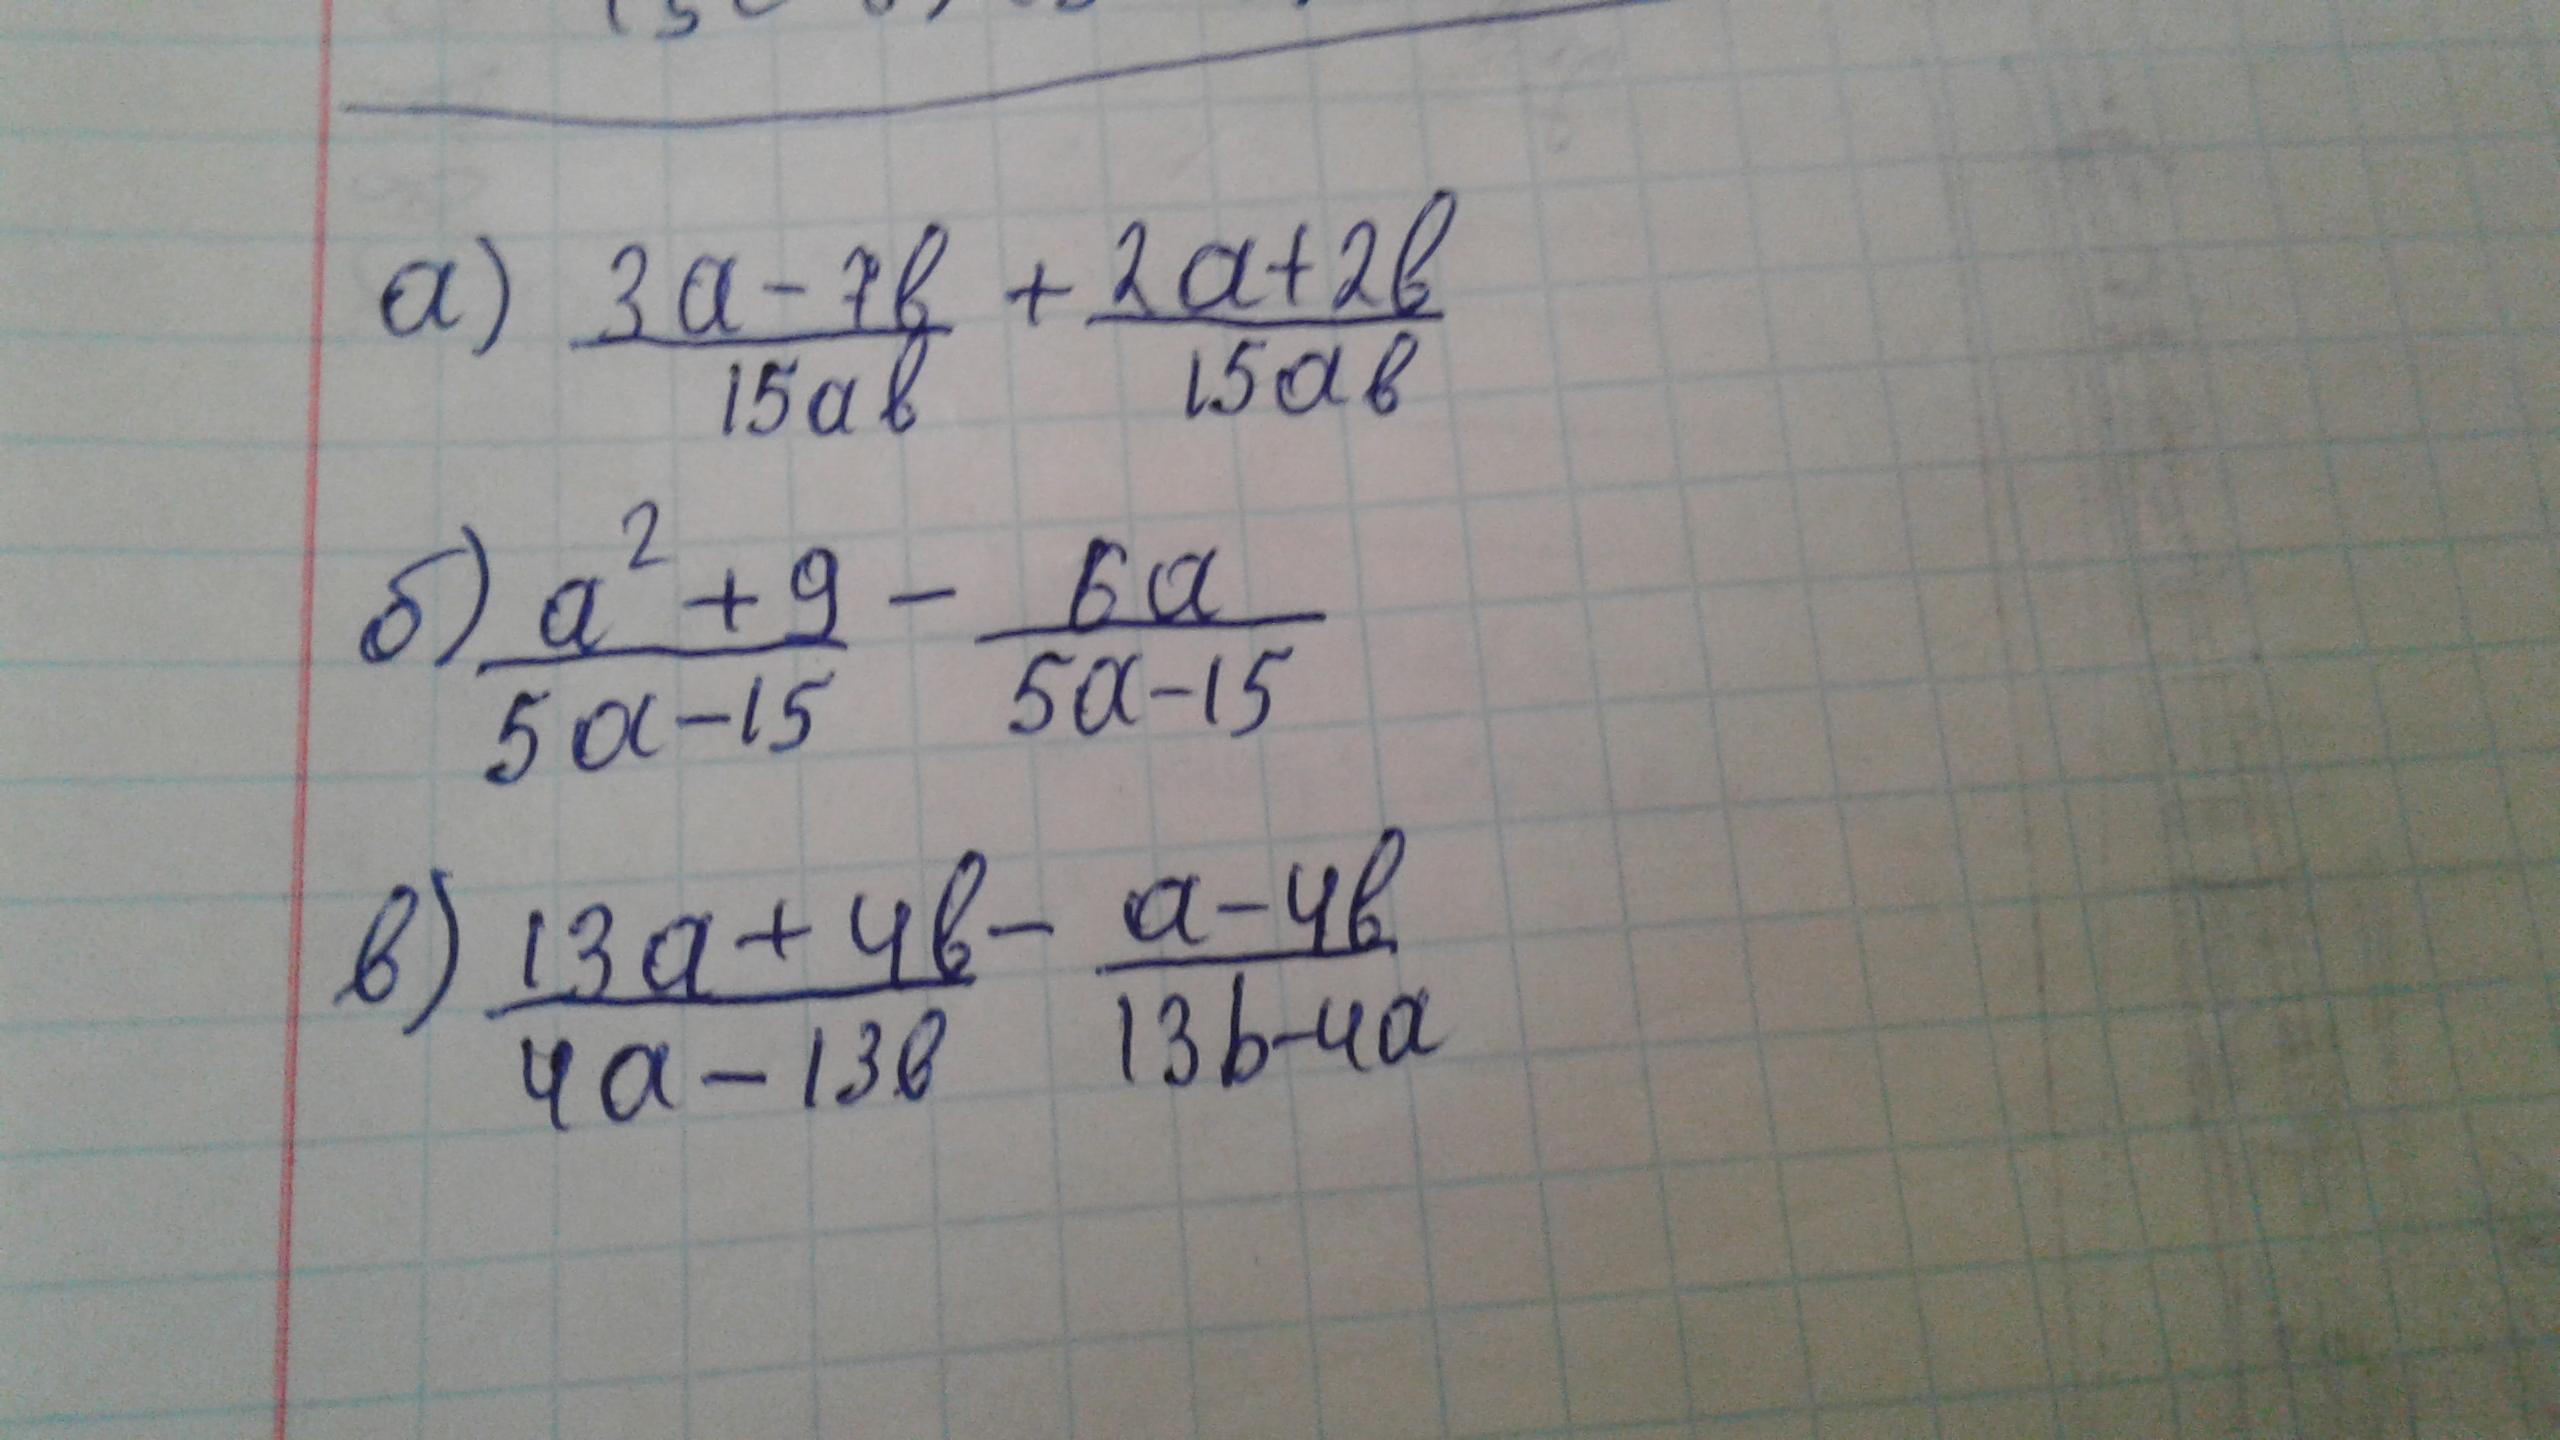 а) (3a-7b)/(15ab) + (2a+2b)/(15ab)
б) (a²+9)/(5a-15) - (6a)/(5a-15)
в) (13a+4b)/(4a-13b) - (a-4b)/(13b-4a)